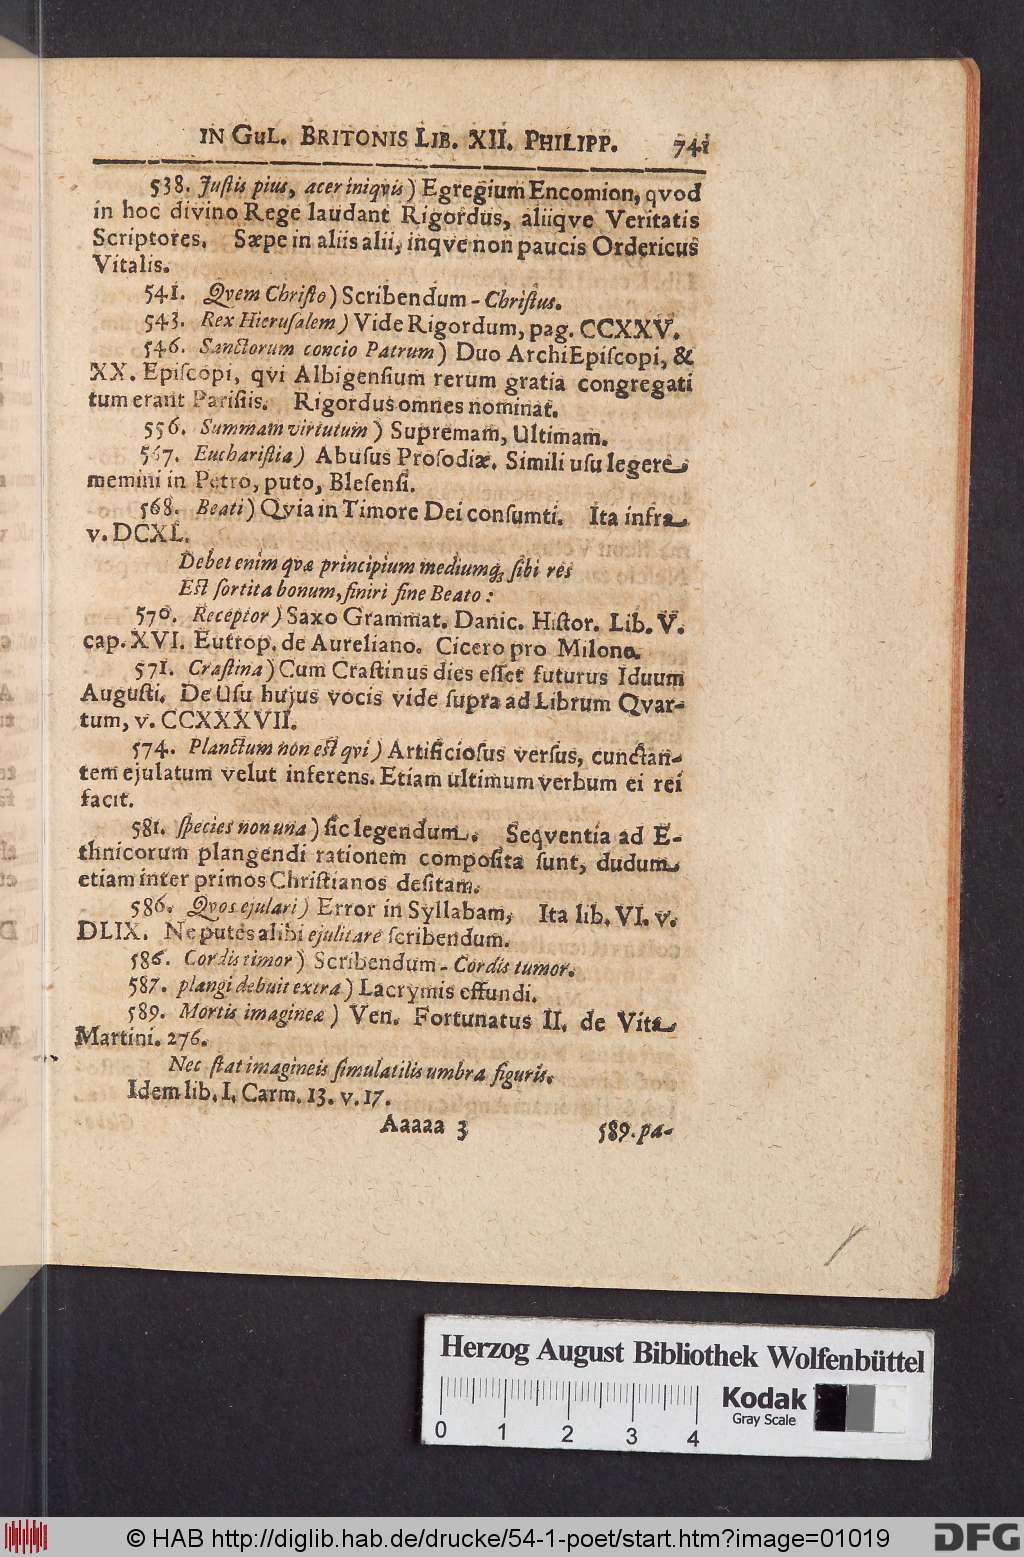 IN GuL. BRITONIS LIB. XII. PHILIPP. 741
538. Juſtis pius, acer iniqvis) Egregium Encomion, qvod
in hoc divino Rege laudant Rigordus, aliiqve Veritatis
Scriptores. Sæpe in aliis alii, inqve non paucis Ordericus
Vitalis.
541. Qvem Chriſto) Scribendum - Chriſtus.
543. Rex Hieruſalem) Vide Rigordum, pag. CCXXV.
546. Sanctorum concio Patrum) Duo ArchiEpiſcopi, &
XX. Epiſcopi, qvi Albigenſium rerum gratia congregati
tum erant Pariſiis. Rigordus omnes nominat.
556. Summam virtutum) Supremam, Ultimam.
567. Euchariſtia) Abuſus Proſodiæ. Simili uſu legere
memini in Petro, puto, Bleſenſi.
568. Beati) Qvia in Timore Dei conſumti. Ita infra
v. DCXL.
Debet enim qvæ principium mediumq; ſibi res
Eſt ſortita bonum, finiri fine Beato:
570. Receptor) Saxo Grammat. Danic. Hiſtor. Lib. V.
cap. XVI. Eutrop. de Aureliano. Cicero pro Milone.
571. Craſtina) Cum Craſtinus dies eſſet futurus Iduum
Auguſti. De Uſu hujus vocis vide ſupra ad Librum Qvar-
tum, v. CCXXXVII.
574. Planctum non eſt qvi) Artificioſus verſus, cunctan-
tem ejulatum velut inferens. Etiam ultimum verbum ei rei
facit.
581. ſpecies non una) ſic legendum. Seqventia ad E-
thnicorum plangendi rationem compoſita ſunt, dudum
etiam inter primos Chriſtianos deſitam.
586. Qvos ejulari) Error in Syllabam, Ita lib. VI. v.
DLIX. Ne putes alibi ejulitare ſcribendum.
586. Cordis timor) Scribendum - Cordis tumor.
587. plangi debuit extra) Lacrymis effundi.
589. Mortis imagineæ) Ven. Fortunatus II. de Vita
Martini. 276.
Nec ſtat imagineis ſimulatilis umbra figuris.
Idem lib. I. Carm. 13. v. 17.
Aaaaa 3 589. pa-
Herzog August Bibliothek Wolfenbüttel
Kodak
Gray Scale
0 1 2 3 4
© HAB http://diglib.hab.de/drucke/54-1-poet/start.htm?image=01019
DFG